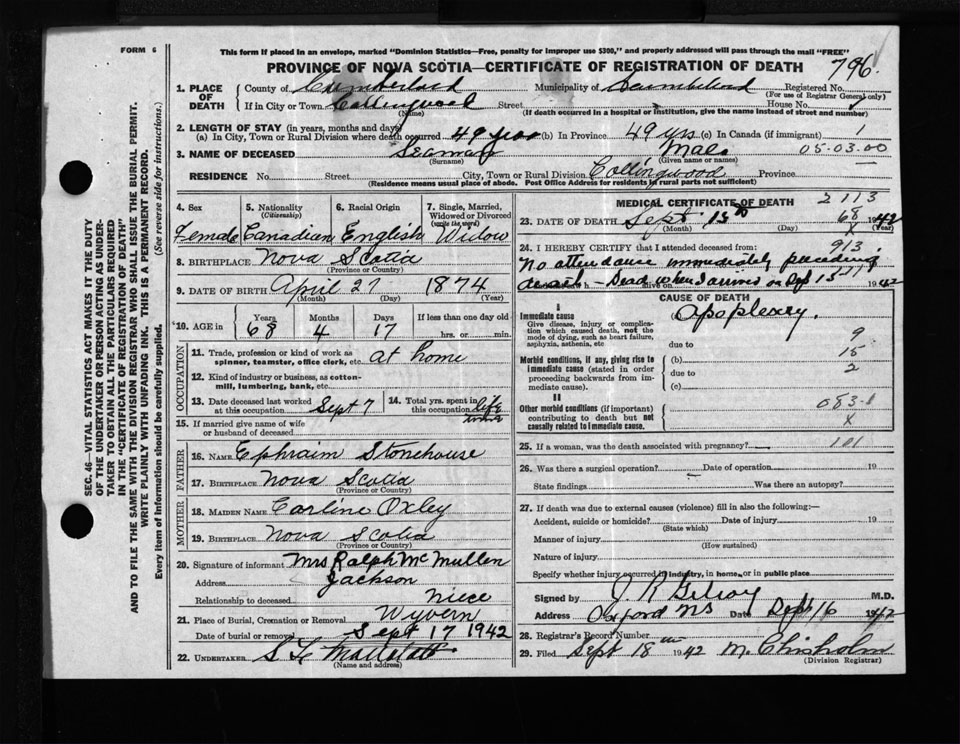 FORM 6
This form if placed in an envelope, marked "Dominion Statistics—Free, penalty for improper use $300," and properly addressed will pass through the mail "FREE"
PROVINCE OF NOVA SCOTIA—CERTIFICATE OF REGISTRATION OF DEATH 796
1. PLACE OF DEATH County of Cumberland Municipality of Cumberland Registered No.
(For use of Registrar General only)
If in City or Town Collingwood Street House No.
(Name) (If death occurred in a hospital or institution, give the name instead of street and number)
2. LENGTH OF STAY (in years, months and days)
(a) In City, Town or Rural Division where death occurred 49 years (b) In Province 49 yrs (c) In Canada (if immigrant) 1
3. NAME OF DECEASED Seaman Mae 05-03.00
(Surname) (Given name or names)
RESIDENCE No. Street City, Town or Rural Division Collingwood Province
(Residence means usual place of abode. Post Office Address for residents in rural parts not sufficient)
SEC. 46—VITAL STATISTICS ACT MAKES IT THE DUTY
OF THE UNDERTAKER OR PERSON ACTING AS UNDER-
TAKER TO OBTAIN ALL THE PARTICULARS REQUIRED
IN THE "CERTIFICATE OF REGISTRATION OF DEATH"
AND TO FILE THE SAME WITH THE DIVISION REGISTRAR WHO SHALL ISSUE THE BURIAL PERMIT.
WRITE PLAINLY WITH UNFADING INK. THIS IS A PERMANENT RECORD.
Every item of information should be carefully supplied. (See reverse side for instructions.)
4. Sex 5. Nationality (Citizenship) 6. Racial Origin 7. Single, Married, Widowed or Divorced (write the word)
Female Canadian English Widow
8. BIRTHPLACE Nova Scotia
(Province or Country)
9. DATE OF BIRTH April 27 1874
(Month) (Day) (Year)
10. AGE in Years Months Days If less than one day old
68 4 17 hrs. or min.
OCCUPATION
11. Trade, profession or kind of work as spinner, teamster, office clerk, etc. at home
12. Kind of industry or business, as cotton-mill, lumbering, bank, etc.
13. Date deceased last worked at this occupation Sept 7 14. Total yrs. spent in this occupation life
15. If married give name of wife or husband of deceased
FATHER
16. NAME Ephraim Stonehouse
17. BIRTHPLACE Nova Scotia
(Province or Country)
MOTHER
18. MAIDEN NAME Carline Oxley
19. BIRTHPLACE Nova Scotia
(Province or Country)
20. Signature of informant Mrs Ralph McMullen
Address Jackson
Relationship to deceased niece
21. Place of Burial, Cremation or Removal Wyvern
Date of burial or removal Sept 17 1942
22. UNDERTAKER
(Name and address)
MEDICAL CERTIFICATE OF DEATH 2113
23. DATE OF DEATH Sept 13th 68 1942
(Month) (Day) X (Year)
24. I HEREBY CERTIFY that I attended deceased from: 913
No attendance immediately preceding
death - Dead when I arrived on Sep 13 1942
CAUSE OF DEATH
I
Immediate cause Apoplexy.
Give disease, injury or complication which caused death, not the mode of dying, such as heart failure, asphyxia, asthenia, etc
due to 9
Morbid conditions, if any, giving rise to immediate cause (stated in order proceeding backwards from immediate cause).
(b) 15
due to 2
(c)
II
Other morbid conditions (if important) contributing to death but not causally related to immediate cause.
083-1
X
25. If a woman, was the death associated with pregnancy? 101
26. Was there a surgical operation? Date of operation 19
State findings Was there an autopsy?
27. If death was due to external causes (violence) fill in also the following:—
Accident, suicide or homicide? Date of injury 19
(State which)
Manner of injury
(How sustained)
Nature of injury
Specify whether injury occurred in industry, in home, or in public place
Signed by J. R. Gilroy M.D.
Address Oxford NS Date Sept 16 1942
28. Registrar's Record Number
29. Filed Sept 18 1942 M. Chisholm
(Division Registrar)